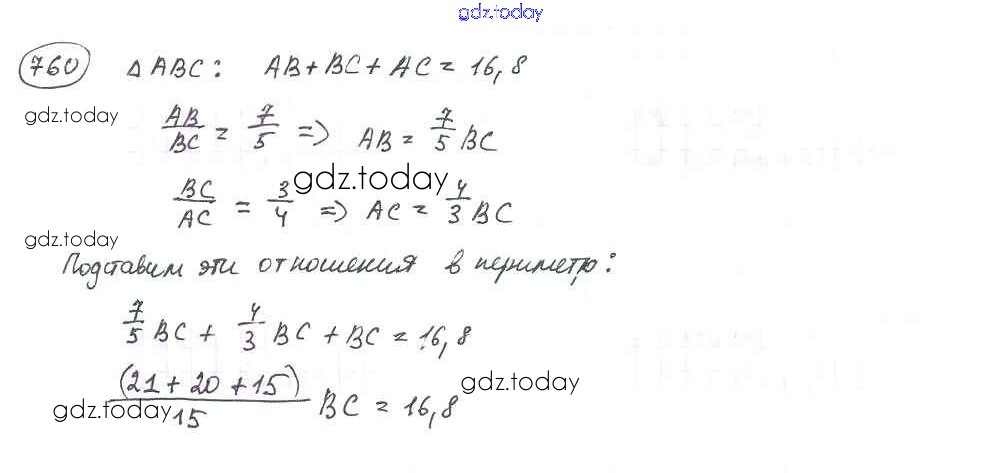 gdz.today
760 △ABC: AB+BC+AC = 16,8
gdz.today
AB/BC = 7/5 => AB = 7/5 BC
gdz.today
BC/AC = 3/4 => AC = 4/3 BC
gdz.today
Подставим эти отношения в периметр:
7/5 BC + 4/3 BC + BC = 16,8
gdz.today
(21 + 20 + 15)/15 BC = 16,8
gdz.today